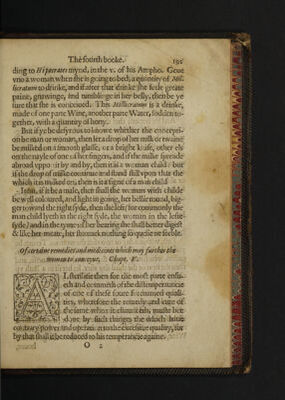 The fourth booke. 195
ding to Hipocrates mynd, in the v. of his Ampho. Geue
vnto a woman when she is going to bed, a quantity of Mel-
licratum to drinke, and if after that drinke she feele greate
paine, gnawinge, and tumblinge in her belly, then be ye
sure that she is conceiued. This Mellicratum is a drinke,
made of one parte Wine, another parte Water, sodden to-
gether, with a quantity of hony.
But if ye be desyrous to knowe whether the concepti-
on be man or woman, then let a drop of her milk or twaine
be milked on a smooth glasse, or a bright knife, other els
on the nayle of one of her fingers, and if the milke spreade
abroad vppon it by and by, then it is a woman child: but
if the drop of milke continue and stand still vpon that the
which it is milked on, then is it a signe of a man child.
Item, if it be a male, then shall the woman with childe
be well coloured, and light in going, her belly round, big-
ger toward the right syde, then the left: for commonly the
man child lyeth in the right syde, the woman in the lefte
syde: and in the tyme of her bearing she shall better digest
& like her meate, her stomack nothing so queise ne feeble.
Of certaine remedies and medicines which may further the
woman to conceyue. Chapt. V.
ech and commeth of the distemperancie
of one of these foure foresaid quali-
ties, wherefore the remedy and cure of
the same
done by such thinges the which haue
contrary power and operation to the excessiue quality, for
by that shall it be reduced to his temperancie againe.
O 2